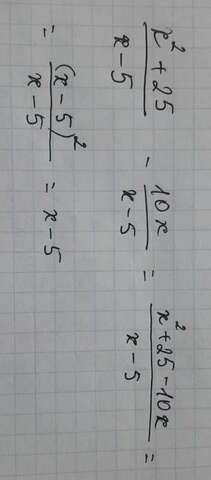 \frac{x^2 + 25}{x - 5} - \frac{10x}{x - 5} = \frac{x^2 + 25 - 10x}{x - 5} =
= \frac{(x - 5)^2}{x - 5} = x - 5